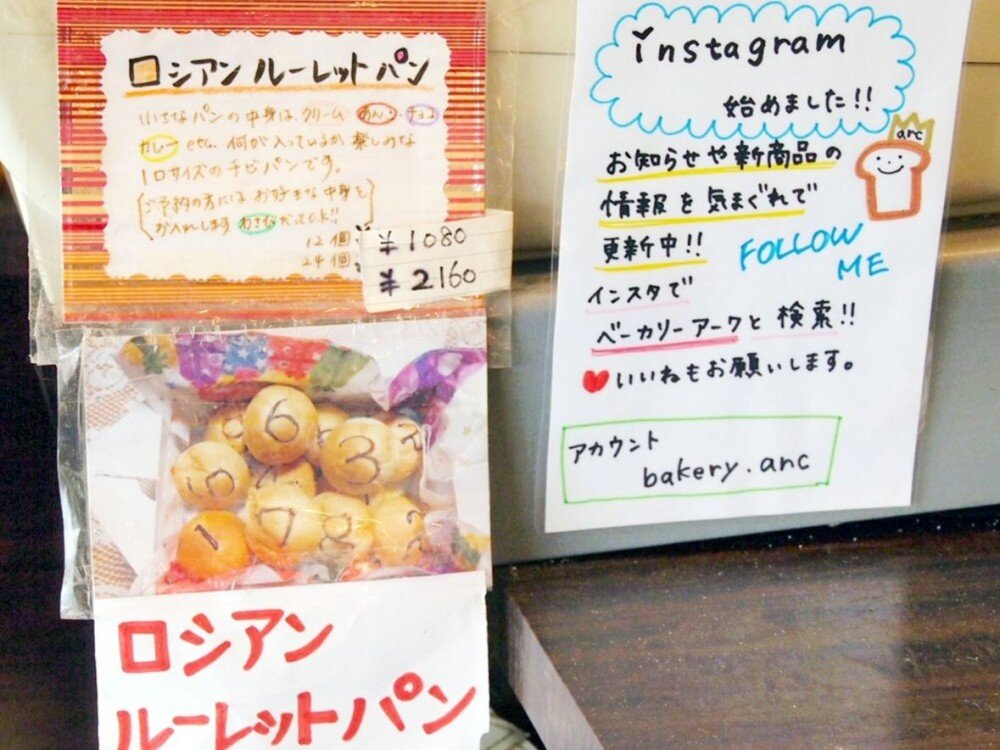 ロシアン ルーレット パン
小さなパンの中身は、クリーム・あんこ・チョコ
カレー etc. 何が入っているか 楽しめな
1口サイズのチビパンです。
ご予約の方には お好きな中身を
お入れします わさびだってOK!!
12個
24個
¥1080
¥2160
6
3
10
1
7
ロシアン
ルーレットパン
instagram
始めました!!
arc
お知らせや新商品の
情報を気まぐれで
更新中!!
FOLLOW
ME
インスタで
ベーカリーアークと 検索!!
♥いいねもお願いします。
アカウント
bakery.arc